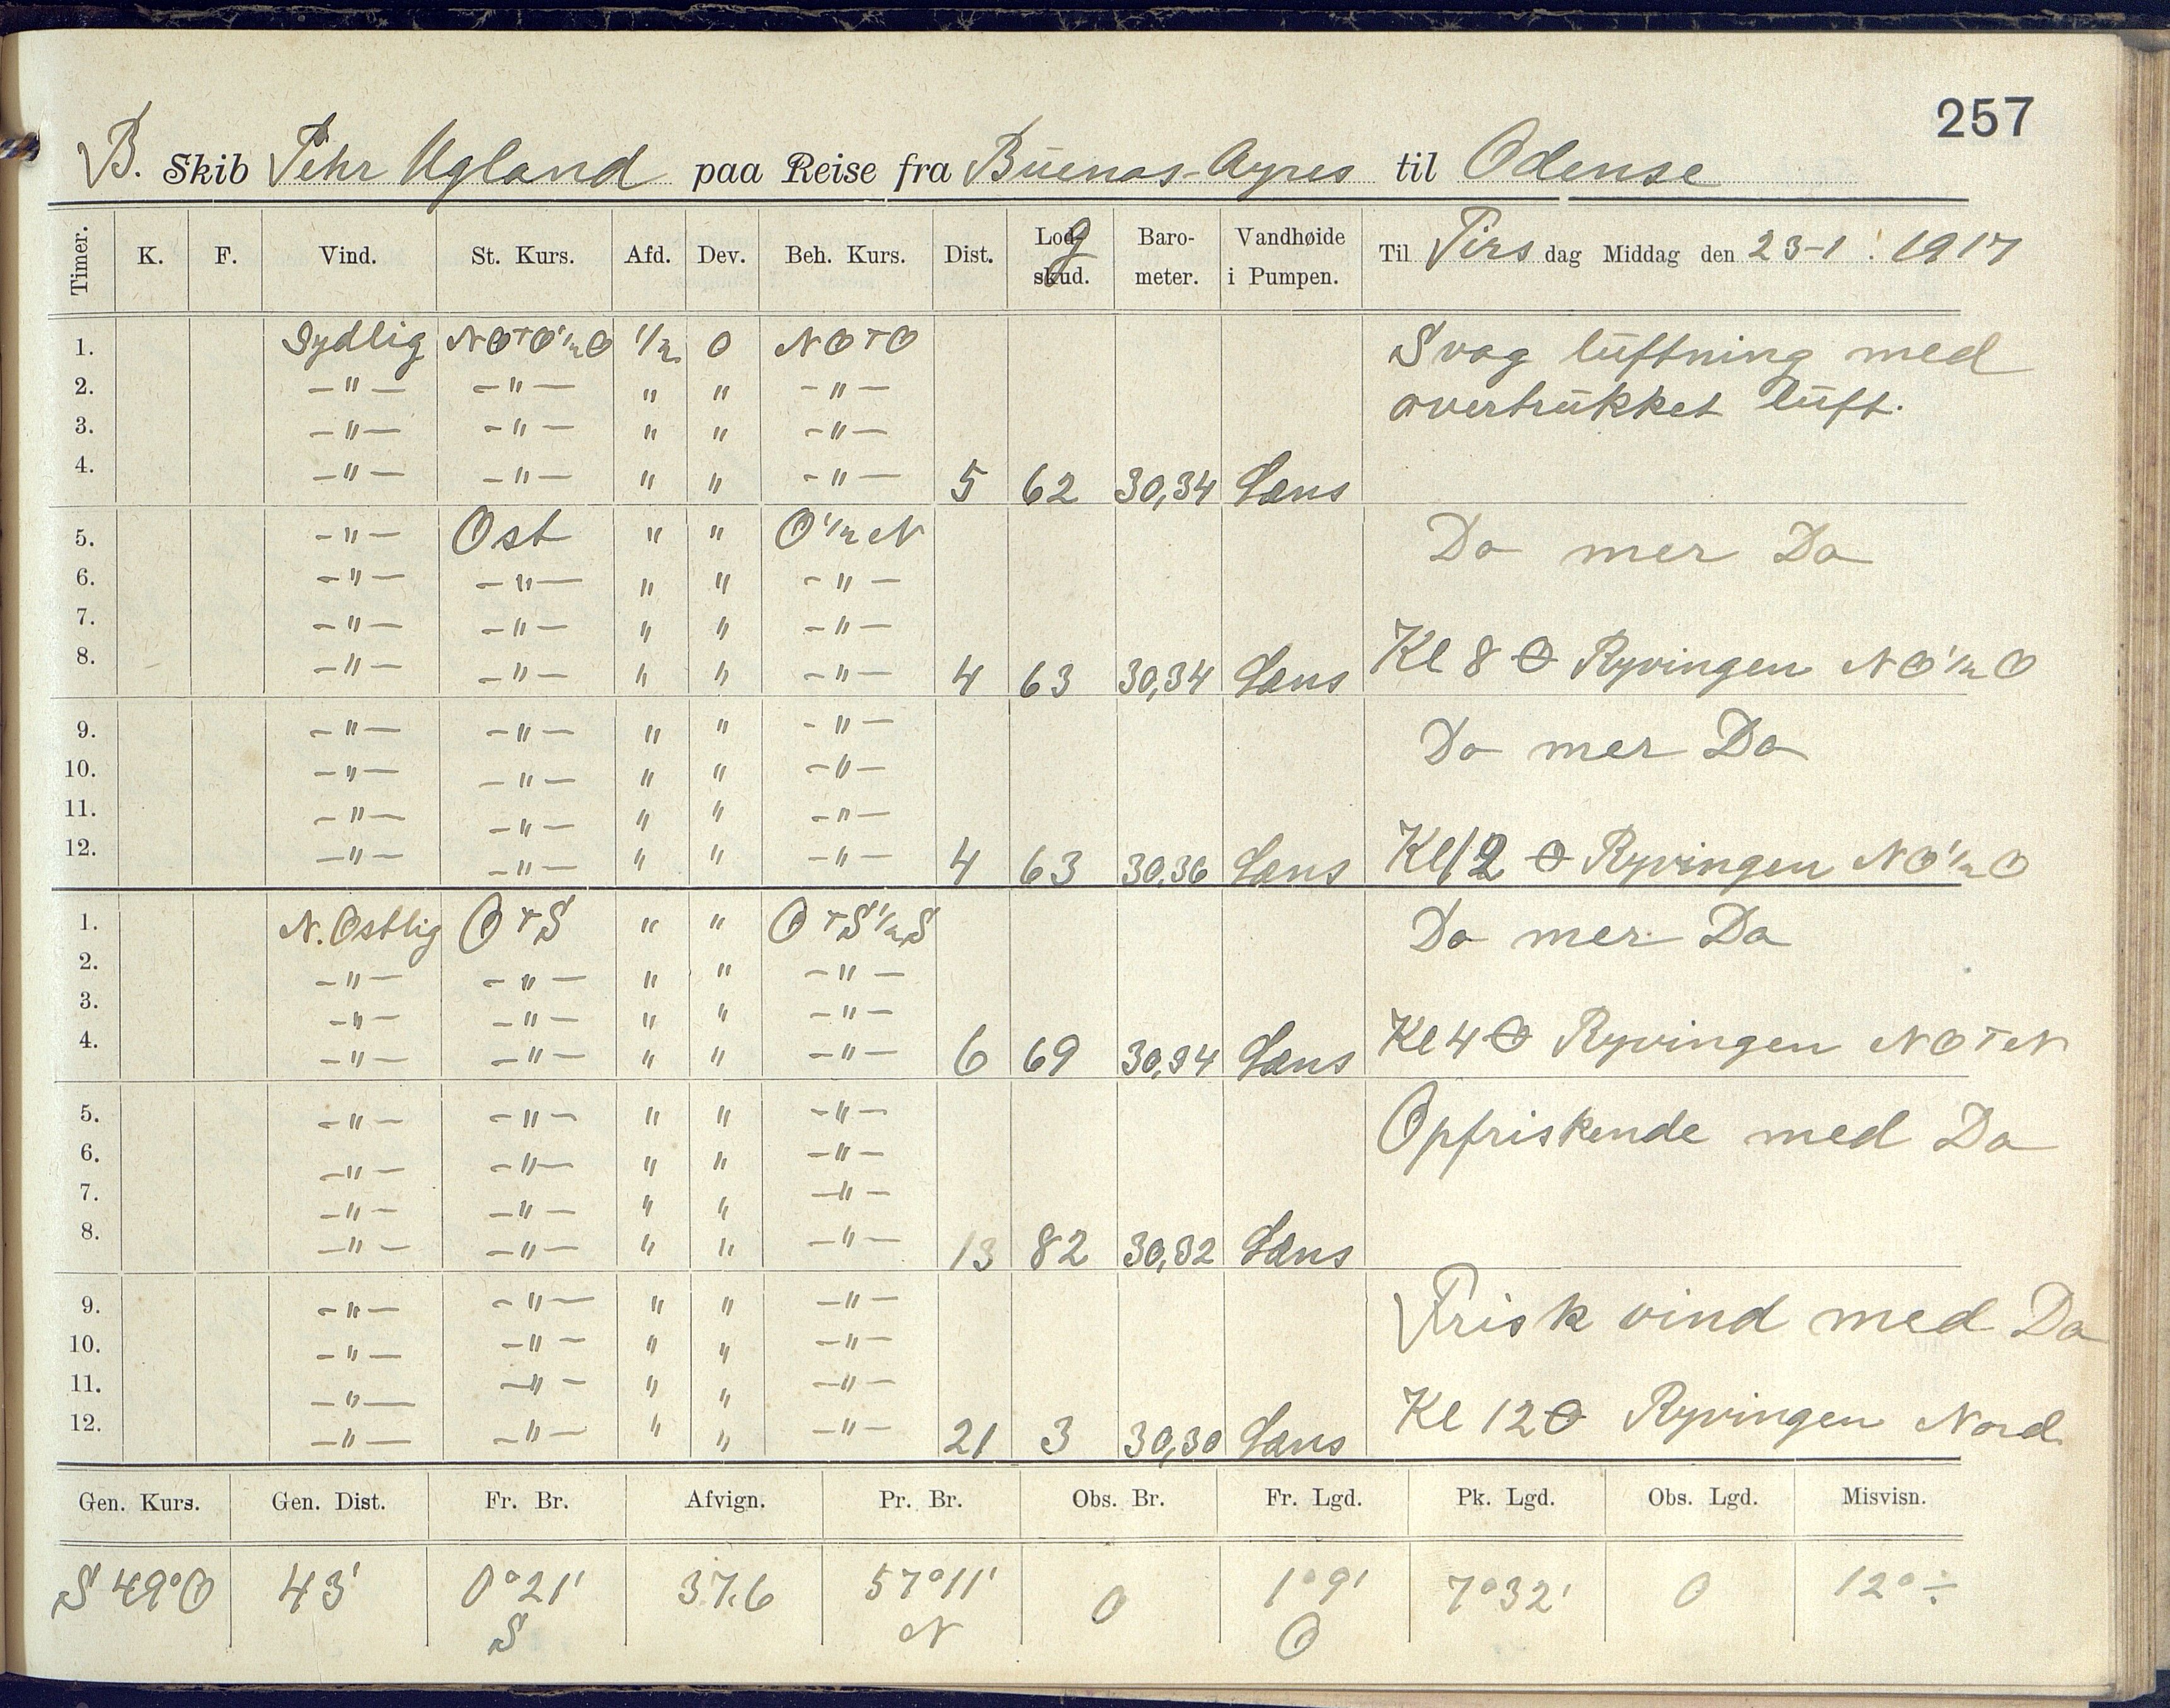 257
B. Skib Pehr Ugland paa Reise fra Buenos-Ayres til Odense
Timer. K. F. Vind. St. Kurs. Afd. Dev. Beh. Kurs. Dist. Lodg skud. Baro- meter. Vandhøide i Pumpen. Til Tirs dag Middag den 23-1. 1917
1. Sydlig NOTO½O ½ 0 NOTO Svag luftning med
2. -"- -"- " " -"- overtrukket luft.
3. -"- -"- " " -"-
4. -"- -"- " " -"- 5 62 30,34 Læns
5. -"- Ost " " O½N Do mer Do
6. -"- -"- " " -"-
7. -"- -"- " " -"-
8. -"- -"- " " -"- 4 63 30,34 Læns Kl 8 Ryvingen NO½O
9. -"- -"- " " -"- Do mer Do
10. -"- -"- " " -"-
11. -"- -"- " " -"-
12. -"- -"- " " -"- 4 63 30,36 Læns Kl 12 Ryvingen NO½O
1. N.Ostlig OTS " " OTS½S Do mer Do
2. -"- -"- " " -"-
3. -"- -"- " " -"-
4. -"- -"- " " -"- 6 69 30,34 Læns Kl 4 Ryvingen NOTN
5. -"- -"- " " -"- Opfriskende med Do
6. -"- -"- " " -"-
7. -"- -"- " " -"-
8. -"- -"- " " -"- 13 82 30,32 Læns
9. -"- -"- " " -"- Frisk vind med Do
10. -"- -"- " " -"-
11. -"- -"- " " -"-
12. -"- -"- " " -"- 21 3 30,30 Læns Kl 12 Ryvingen Nord
Gen. Kurs. Gen. Dist. Fr. Br. Afvign. Pr. Br. Obs. Br. Fr. Lgd. Pk. Lgd. Obs. Lgd. Misvisn.
S 49°O 43' 0°21' S 37.6 57°11' N 0 1°9' O 7°32' 0 12° ÷